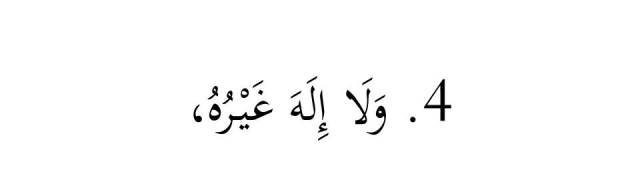 4. وَلَا إِلَهَ غَيْرُهُ،